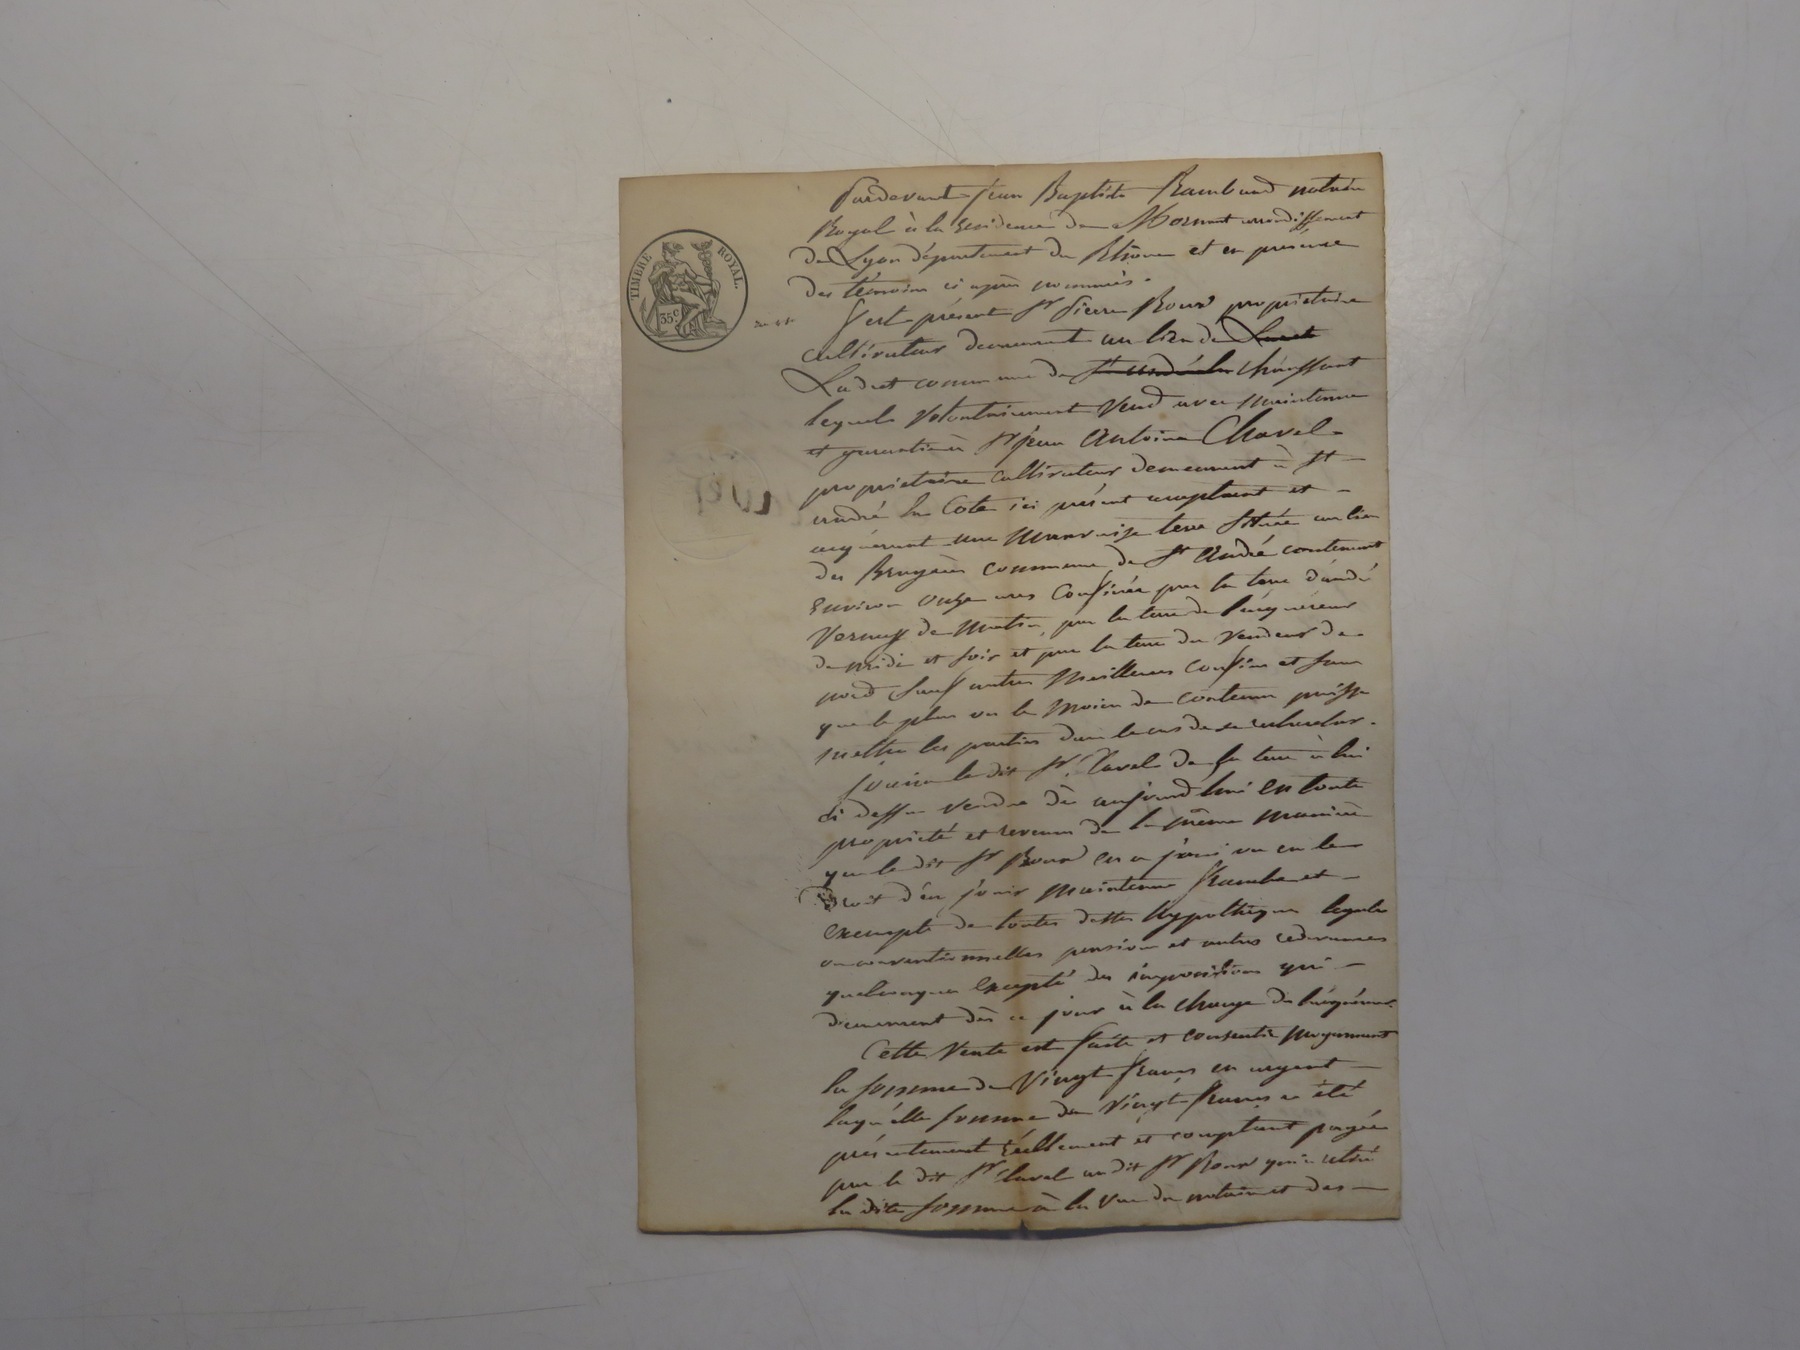 TIMBRE ROYAL.
35 c.
Pardevant jean Baptiste Rambaud notaire
Royal à la Residence de Mornant arrondissement
de Lyon département du Rhône et en présence
des témoins ci après nommés.
S'est présent Sr pierre Roux propriétaire
cultivateur demeurant au lieu de
Ladret commune de St andré la Chaussant
lequel volontairement vend avec maintenue
et garantie à Sr jean Antoine Chavel
propriétaire cultivateur demeurant à St
andré la Cote ici présent acceptant et
acquerant une Mauvaise terre située au lieu
des Bruyères commune de St André contenant
Environ onze ares Confinée par la terre d'andré
de Matin, par la terre de l'acquéreur
de midi et soir et par la terre du Vendeur de
nord sauf autres Meilleurs confins et sans
que le plus ou le Moins de contenu puisse
mettre les parties dans le cas de se rechercher.
jouira le dit Sr Chavel de la terre à lui
ci dessus vendue dès aujourd'hui en toute
propriété et revenu de la même manière
que le dit Sr Roux en a joui ou eu le
Droit d'en jouir maintenue franche et
exempte de toutes dettes hypothèques legales
ou conventionnelles pension et autres redevances
quelconques Excepté des impositions qui
demeurent dès ce jour à la charge de l'acquéreur.
Cette Vente est faite et consentie moyennant
la somme de Vingt francs en argent
laquelle somme de Vingt francs a été
présentement réellement et comptant payée
par le dit Sr Chavel au dit Sr Roux qui a retiré
la dite somme à la vue du notaire et des